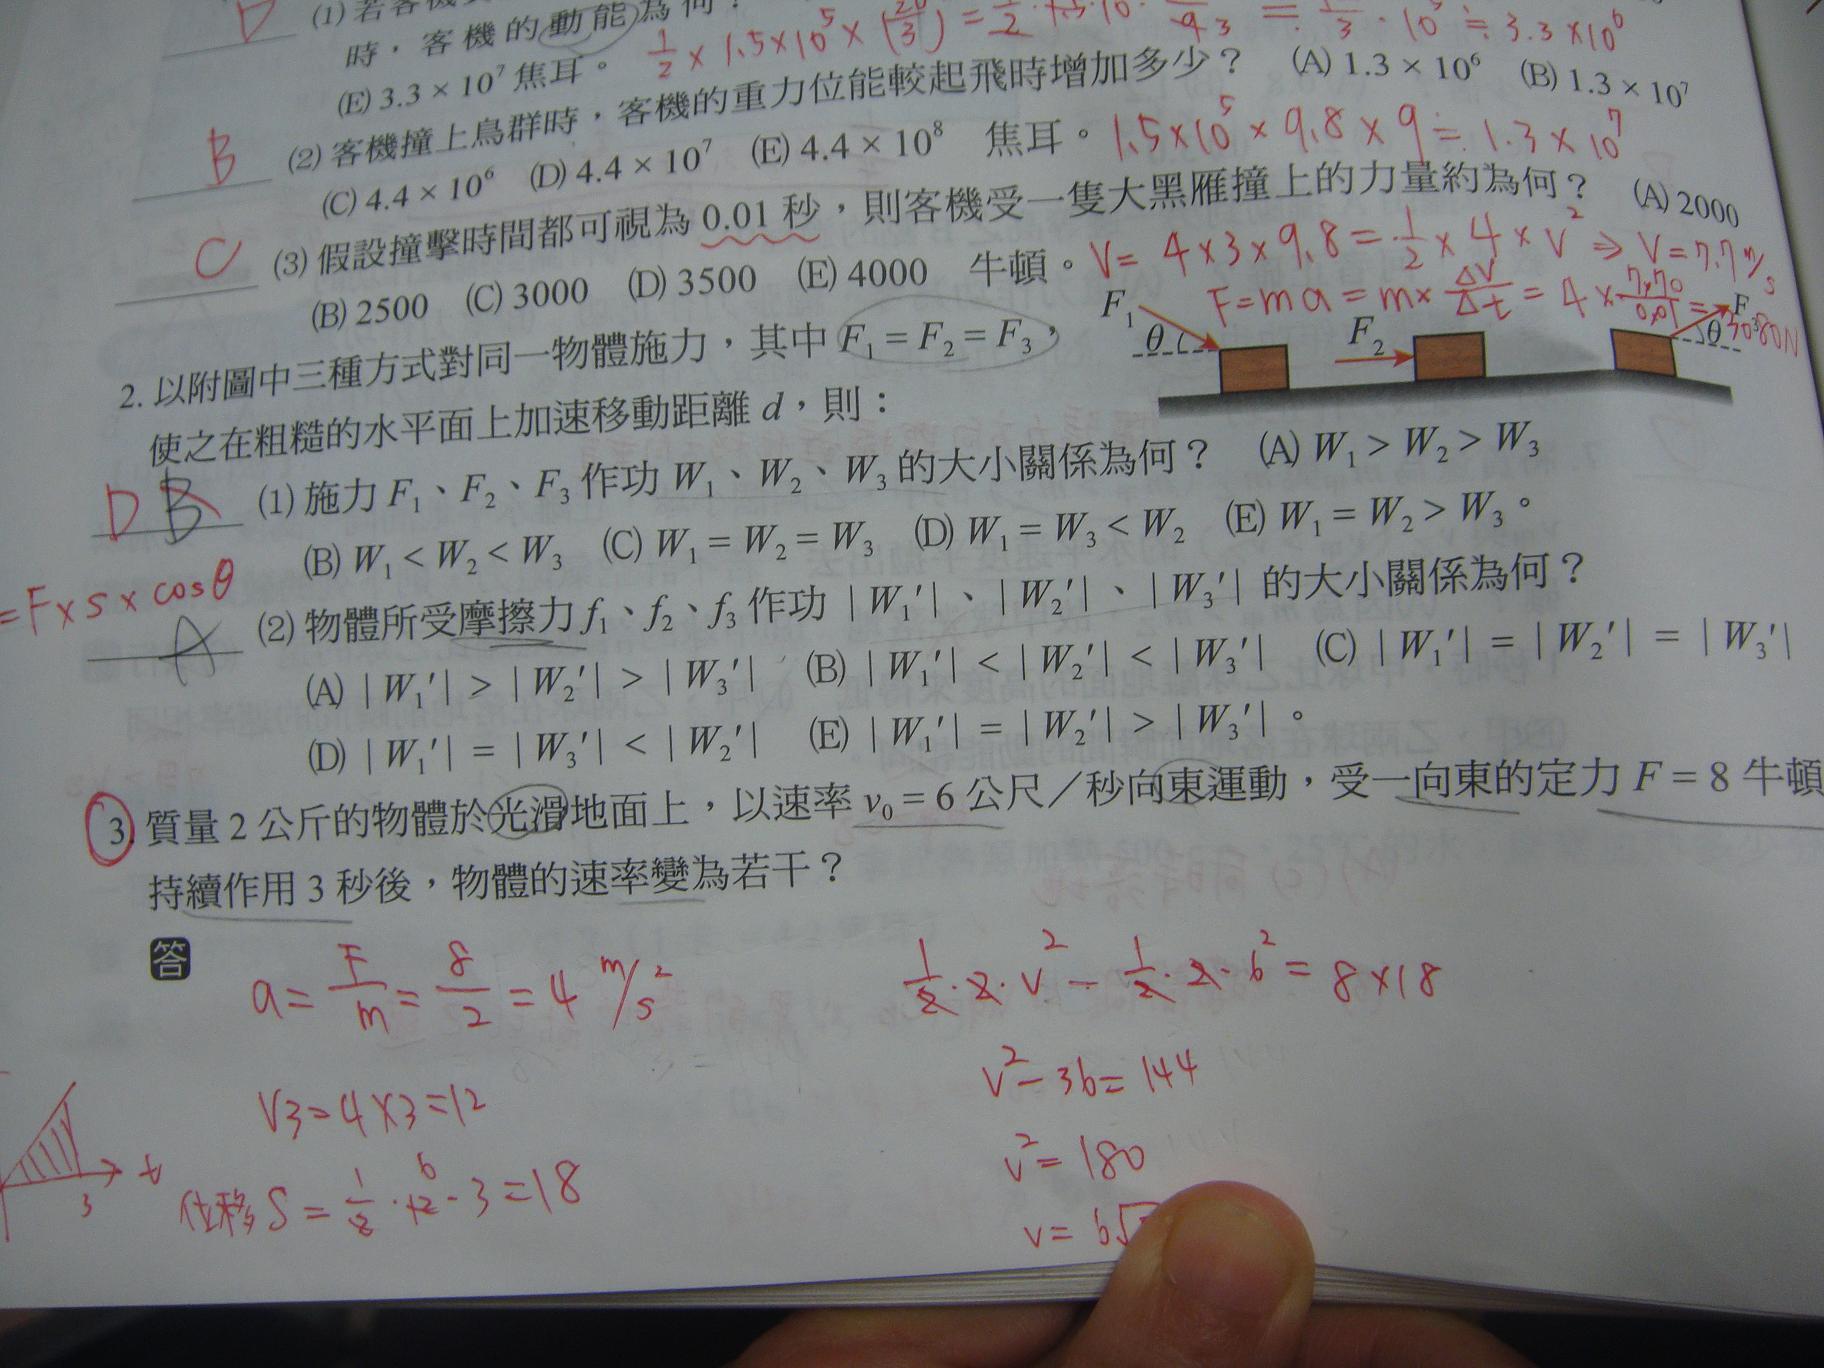 D
(1) 若客機
為何？
時，客機的動能
1/2 × 1.5×10⁵ × (20/3)
≒ 3.3×10⁶
(E) 3.3 × 10⁷ 焦耳。
B
(2) 客機撞上鳥群時，客機的重力位能較起飛時增加多少？ (A) 1.3 × 10⁶ (B) 1.3 × 10⁷
(C) 4.4 × 10⁶ (D) 4.4 × 10⁷ (E) 4.4 × 10⁸ 焦耳。
1.5×10⁵ × 9.8 × 9 ≒ 1.3 × 10⁷
C
(3) 假設撞擊時間都可視為 0.01 秒，則客機受一隻大黑雁撞上的力量約為何？ (A) 2000
(B) 2500 (C) 3000 (D) 3500 (E) 4000 牛頓。
V= 4×3×9.8 = 1/2 × 4 × V² ⇒ V=7.7 m/s
F=ma = m× ΔV/Δt = 4 × 7.70/0.01 = 3080N
2. 以附圖中三種方式對同一物體施力，其中 F₁ = F₂ = F₃，
使之在粗糙的水平面上加速移動距離 d，則：
F₁ θ
F₂
F₃ θ
D B
(1) 施力 F₁、F₂、F₃ 作功 W₁、W₂、W₃ 的大小關係為何？ (A) W₁ > W₂ > W₃
(B) W₁ < W₂ < W₃ (C) W₁ = W₂ = W₃ (D) W₁ = W₃ < W₂ (E) W₁ = W₂ > W₃。
=F×s×cosθ
A
(2) 物體所受摩擦力 f₁、f₂、f₃ 作功 | W₁′|、| W₂′|、| W₃′| 的大小關係為何？
(A) | W₁′| > | W₂′| > | W₃′| (B) | W₁′| < | W₂′| < | W₃′| (C) | W₁′| = | W₂′| = | W₃′|
(D) | W₁′| = | W₃′| < | W₂′| (E) | W₁′| = | W₂′| > | W₃′|。
3. 質量 2 公斤的物體於光滑地面上，以速率 v₀ = 6 公尺／秒向東運動，受一向東的定力 F = 8 牛頓
持續作用 3 秒後，物體的速率變為若干？
答
a = F/m = 8/2 = 4 m/s²
V3=4×3=12
位移 S = 1/2 · 12 · 3 = 18
6
t
3
1/2 · 2 · V² − 1/2 · 2 · 6² = 8×18
V² − 36 = 144
V² = 180
V = 6√